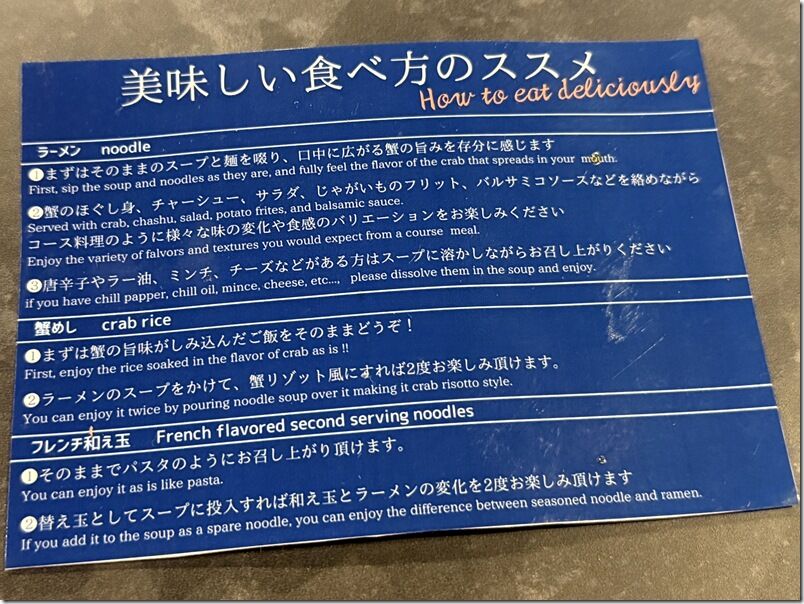 美味しい食べ方のススメ
How to eat deliciously
ラーメン noodle
❶まずはそのままのスープと麺を啜り、口中に広がる蟹の旨みを存分に感じます
First, sip the soup and noodles as they are, and fully feel the flavor of the crab that spreads in your mouth.
❷蟹のほぐし身、チャーシュー、サラダ、じゃがいものフリット、バルサミコソースなどを絡めながら
Served with crab, chashu, salad, potato frites, and balsamic sauce.
コース料理のように様々な味の変化や食感のバリエーションをお楽しみください
Enjoy the variety of falvors and textures you would expect from a course meal.
❸唐辛子やラー油、ミンチ、チーズなどがある方はスープに溶かしながらお召し上がりください
if you have chill papper, chill oil, mince, cheese, etc..., please dissolve them in the soup and enjoy.
蟹めし crab rice
❶まずは蟹の旨味がしみ込んだご飯をそのままどうぞ！
First, enjoy the rice soaked in the flavor of crab as is !!
❷ラーメンのスープをかけて、蟹リゾット風にすれば2度お楽しみ頂けます。
You can enjoy it twice by pouring noodle soup over it making it crab risotto style.
フレンチ和え玉 French flavored second serving noodles
❶そのままでパスタのようにお召し上がり頂けます。
You can enjoy it as is like pasta.
❷替え玉としてスープに投入すれば和え玉とラーメンの変化を2度お楽しみ頂けます
If you add it to the soup as a spare noodle, you can enjoy the difference between seasoned noodle and ramen.